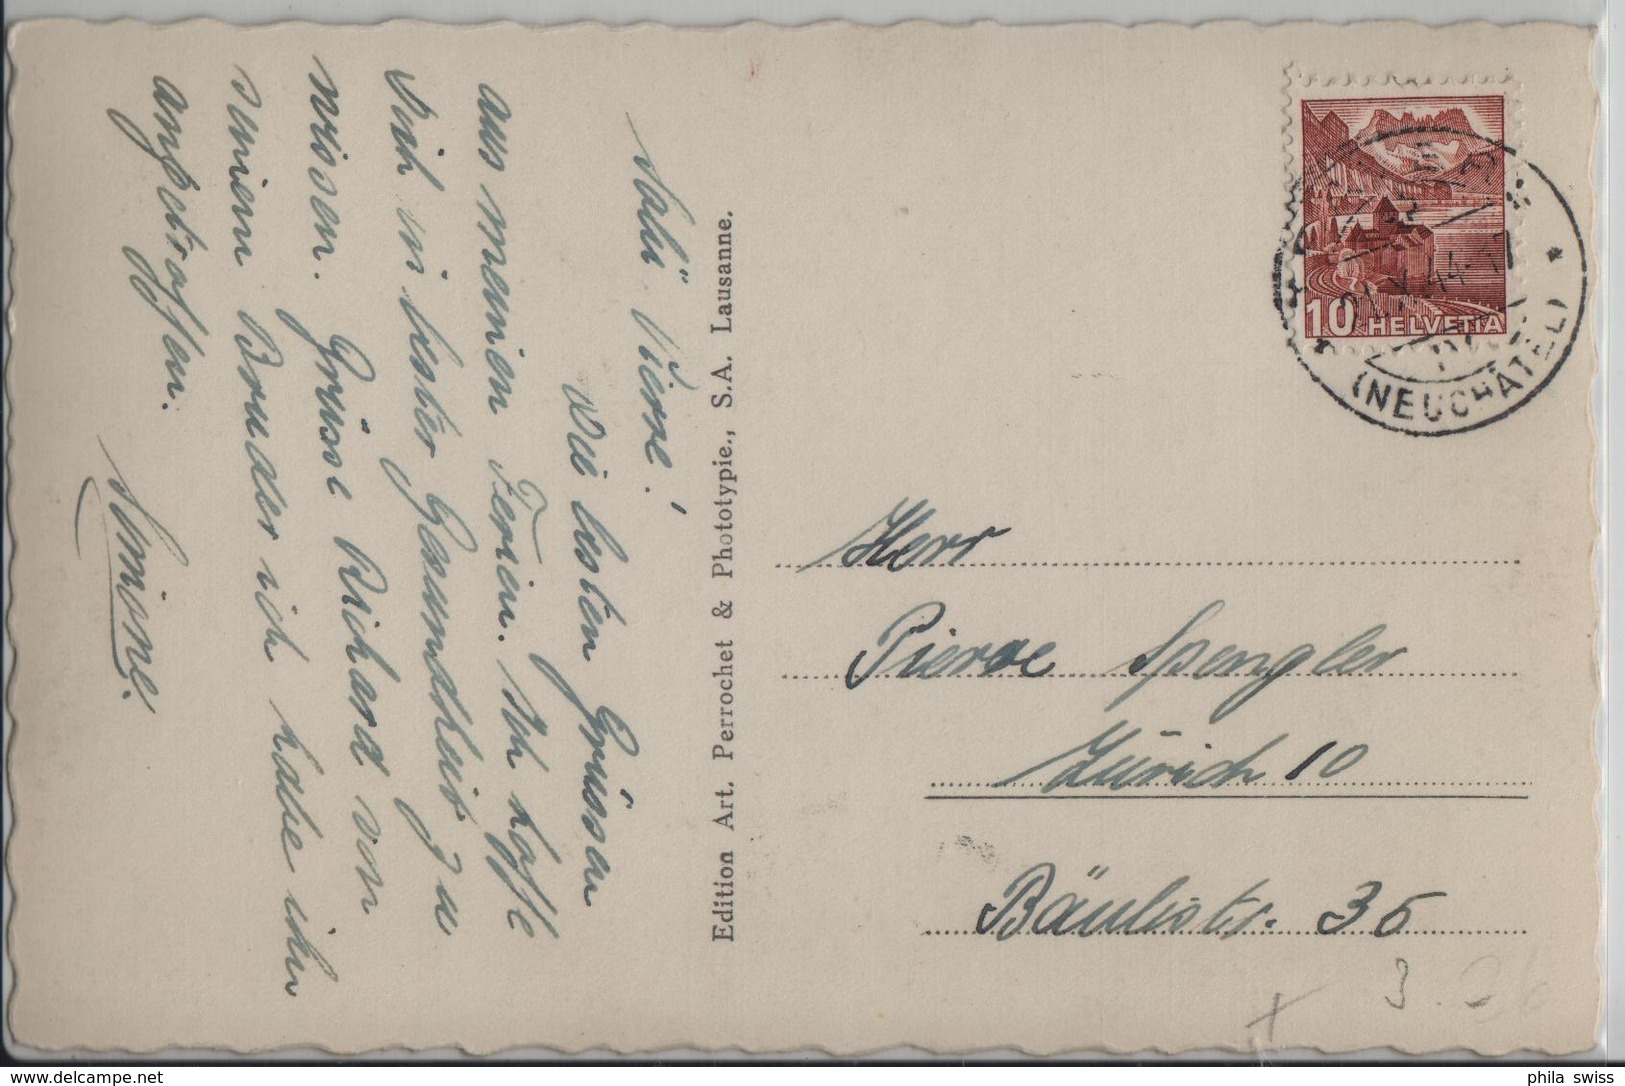 Salü Pierre!
Die besten Grüssen
aus meinen Ferien. Ich hoffe
Dich in bester Gesundheit zu
wissen. Grüsse Richard von
seinem Bruder ich habe ihn
angetroffen.
Simone.
Edition Art. Perrochet & Phototypie., S.A. Lausanne.
10 HELVETIA
21.X.44-17
(NEUCHÂTEL)
Herr
Pierre Spengler
Zürich 10
Bäulistr. 35
3.
phila swiss